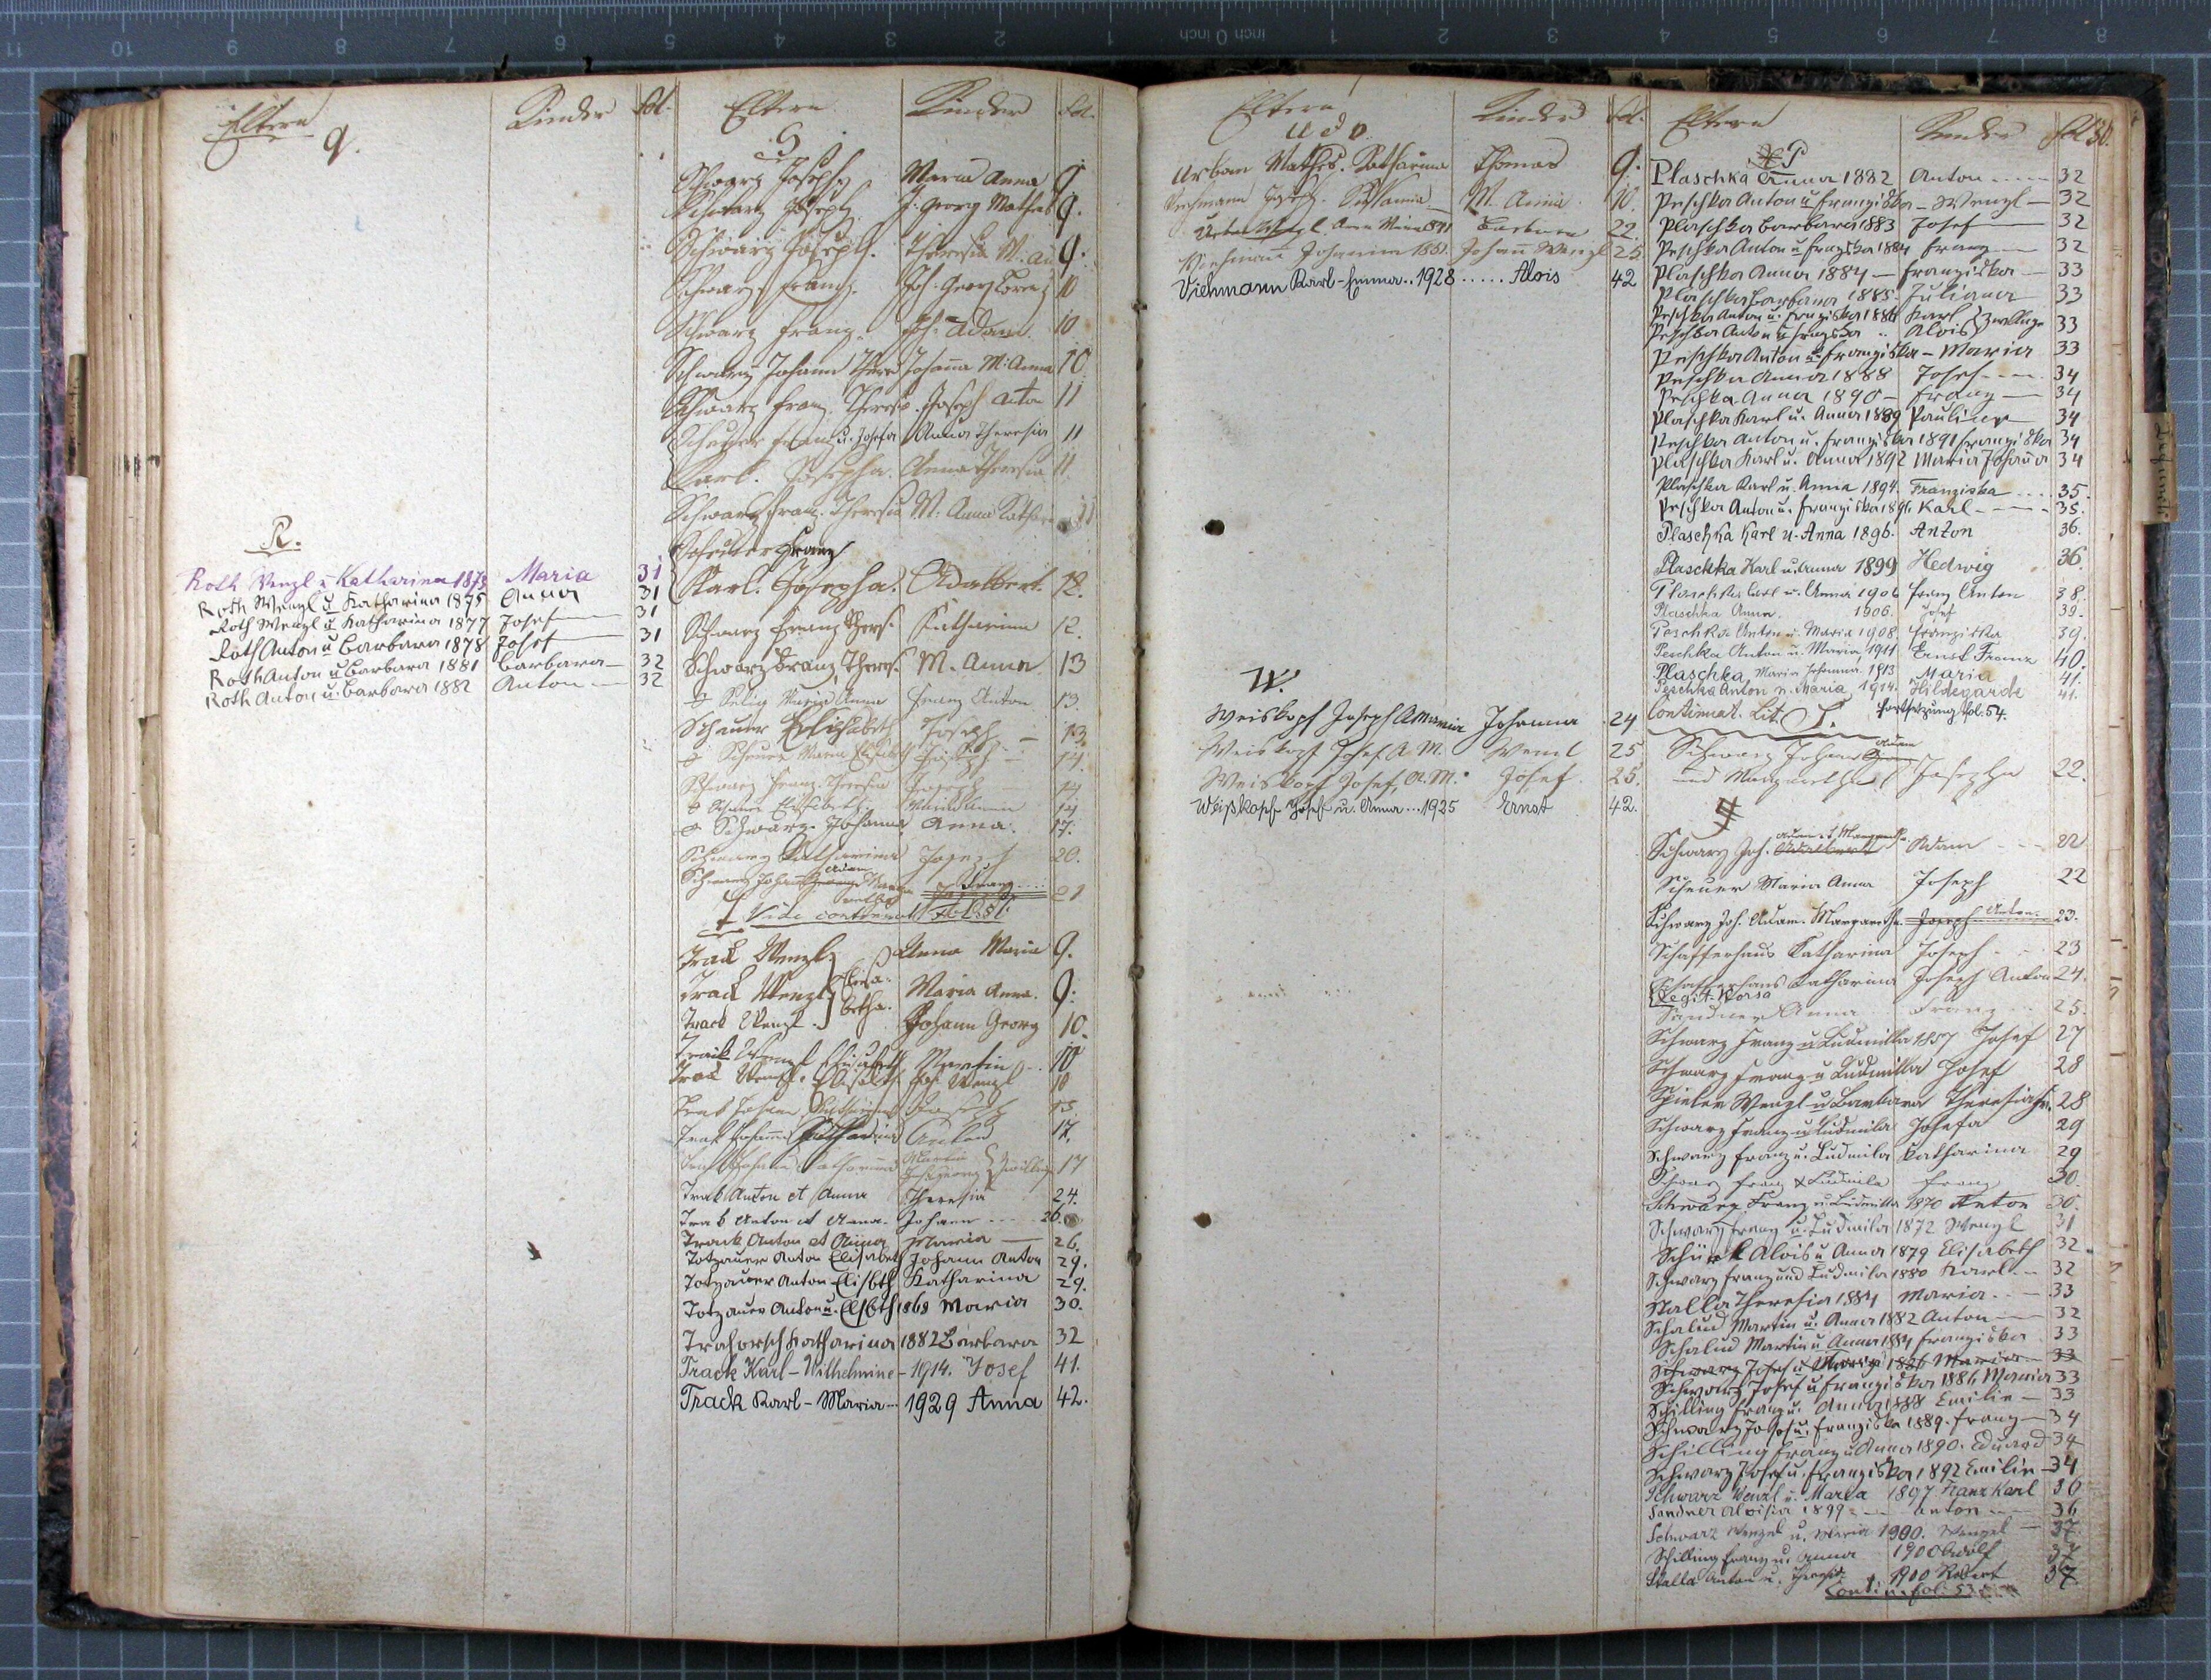 Eltern Kinder Fol.
Q.
R.
Roth Wenzl u Katharina 1873 Maria 31
Roth Wenzl u Katharina 1875 Anna 31
Roth Wenzl u Katharina 1877 Josef 31
Roth Anton u Barbara 1878 Josef 31
Roth Anton u Barbara 1881 Barbara 32
Roth Anton u. Barbara 1882 Anton 32
Eltern Kinder Fol.
S
Schwarz Joseph Maria Anna 9
Schwarz Joseph J: Georg Mathes 9.
Schwarz Joseph. Theresia M. An 9.
Schwarz Franz. Joh. Georg Lorenz 10
Schwarz Franz. Joh. Adam 10
Schwarz Johann Ther Johanna M. Anna 10
Schwarz Franz. Theres. Joseph Anton 11
Scheuer Franz u. Josefa Anna Theresia 11
Karl. Josepha. Anna Theresia 11.
Schwarz Franz. Theresia M. Anna Kathar 11
Scheuer Franz
Karl. Josepha. Adalbert. 12.
Schwarz Franz Theres. Katharina 12.
Schwarz Franz, Theres. M. Anna 13
Selig Maria Anna Franz Anton 13.
Scheuer Elisabeth Joseph 13.
Scheuer Maria Elisabeth Joseph 14.
Schwarz Franz. Theresia Joseph 14
Scheuer Elisabeth. Anna 14
Schwarz Johanna Anna. 17.
Schwarz Katharina Joseph 20.
Schwarz Johann Adam Franz 21
Vide continuat. Fol. 31.
T.
Track Wenzl Anna Maria 9.
Track Wenzl Elisa- Maria Anna. 9.
Track Wenzl betha. Johann Georg 10.
Track Wenzl Elisabeth Martin 10
Track Wenzl. Elisabeth Joh. Wenzl 10
Trak Johann Katharina Joseph 15
Trak Johann Katharina Anton 17.
Trak Johann Katharina Martin Joh. Georg Zwillinge 17
Trak Anton et Anna Theresia 24.
Trak Anton et Anna. Johann 26.
Track Anton et Anna Maria 26.
Totzauer Anton Elisabeth Johann Anton 29.
Totzauer Anton Elisbth Katharina 29.
Totzauer Anton u. Elsbth 1868 Maria 30.
Trahorsch Katharina 1882 Barbara 32
Track Karl - Wilhelmine - 1914. Josef 41.
Track Karl - Maria 1929 Anna 42.
Eltern Kinder Fol.
U d V.
Urban Mathes. Katharina Thomas 9.
Viehmann Joseph. M. Anna 10.
Urban Anna Barbara 22.
Viehmann Johanna 1851. Johann Wenzl 25
Viehmann Karl - Emma.. 1928 ..... Alois 42
W.
Weiskopf Joseph A Maria Johanna 24
Weiskopf Josef A. M. Wenzl 25
Weiskopf Josef, A. M. Josef 25.
Weißkopf Josef u. Anna ... 1925 Ernst 42.
Eltern Kinder Fol 30.
P
Plaschka Anna 1882 Anton 32
Peschka Anton u Franziska - Wenzl 32
Plaschka Barbara 1883 Josef 32
Peschka Anton u Franziska 1884 Franz 32
Plaschka Anna 1884 - Franziska 33
Plaschka Barbara 1885. Juliana 33
Peschka Anton u. Franziska 1886 Karl Zwillinge
Peschka Anton u Franziska " Alois 33
Peschka Anton u Franziska - Maria 33
Peschka Anna 1888 Josef 34
Peschka Anna 1890 - Franz 34
Plaschka Karl u. Anna 1889 Pauline 34
Peschka Anton u. Franziska 1891 Franziska 34
Plaschka Karl u. Anna 1892 Maria Johanna 34
Plaschka Karl u. Anna 1894. Franziska 35.
Peschka Anton u. Franziska 1896 Karl 35.
Plaschka Karl u. Anna 1896. Anton 36.
Plaschka Karl u. Anna 1899 Hedwig 36.
Plaschka Karl u. Anna 1904 Franz Anton 38.
Plaschka Anna. 1906. Josef 39.
Peschka Anton u. Maria 1908. Franziska 39.
Peschka Anton u. Maria 1911 Ernst Franz 40.
Plaschka Maria Johanna 1913 Maria 41.
Peschka Anton u. Maria 1914. Hildegarde 41.
Continuat. Lit. S. Fortsetzung fol. 54.
Schwarz Johann Adam
und Margaretha Josepha 22.
S
Schwarz Joh. Adam u. Margareth. Adam 22
Scheuer Maria Anna Joseph 22
Schwarz Joh. Adam. Margaretha. Joseph Anton. 23.
Schafferhans Katharina Joseph 23
Schafferhans Katharina Joseph Anton 24.
Legit. Versa
Sandner Anna Franz 25.
Schwarz Franz u Ludmilla 1857 Josef 27
Schwarz Franz u Ludmilla Josef 28
Spieler Wenzl u Barbara Theresia 28
Schwarz Franz u Ludmila Josefa 29
Schwarz Franz u. Ludmila Katharina 29
Schwarz Franz & Ludmila Franz 30.
Schwarz Franz u Ludmilla 1870 Anton 30.
Schwarz Franz u. Ludmila 1872 Wenzl 31
Schürl Alois u Anna 1879 Elisabeth 32.
Schwarz Franz und Ludmila 1880 Karl 32
Stalla Theresia 1884 Maria 33
Schalud Martin u. Anna 1882 Anton 32
Schalud Martin u Anna 1884 Franziska 33
Schwarz Josef u Maria 1886 Maria 33
Schwarz Josef u Franziska 1886 Maria 33
Schilling Franz u. Anna 1888 Emilie 33
Schwarz Josef u. Franziska 1889. Franz 34
Schilling Franz u Anna 1890. Eduard 34
Schwarz Josef u. Franziska 1892 Emilie 34
Schwarz Wenzl u. Maria 1897 Franz Karl 36
Sandner Aloisia 1899 Anton 36
Schwarz Wenzel u. Maria 1900. Wenzel 37.
Schilling Franz u. Anna 1900 Adolf 37
Stalla Anton u. Theresia 1900 Robert 37.
Contin. fol. 53